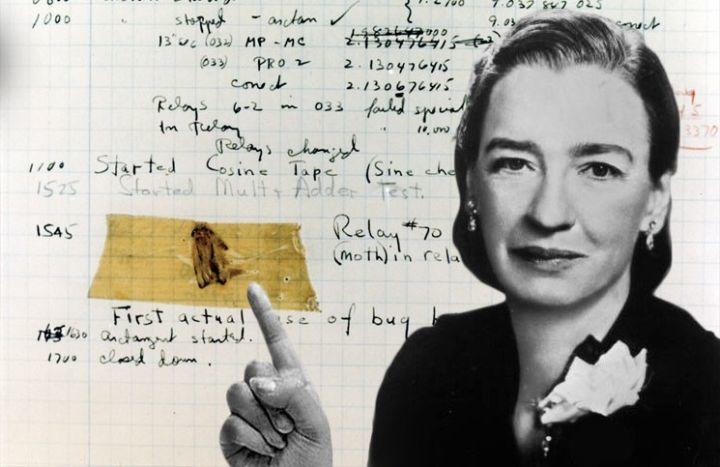 1000 " stopped - arctan ✓
9.037 847 025
13'00 (032) MP - MC 2.130476415
(033) PRO 2 2.130476415
conect 2.130676415
Relays 6-2 in 033 failed special
In Relay " 10,000
Relays changed
1100 Started Cosine Tape (Sine che
1525 Started Mult + Adder Test.
1545 Relay #70
(moth) in rela
First actual se of bug b
1630 arctangent started.
1700 closed down.
3370